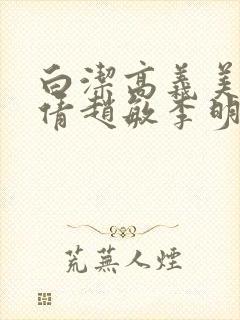 白潔高義美
倩趙敏李明
荒蕪人煙